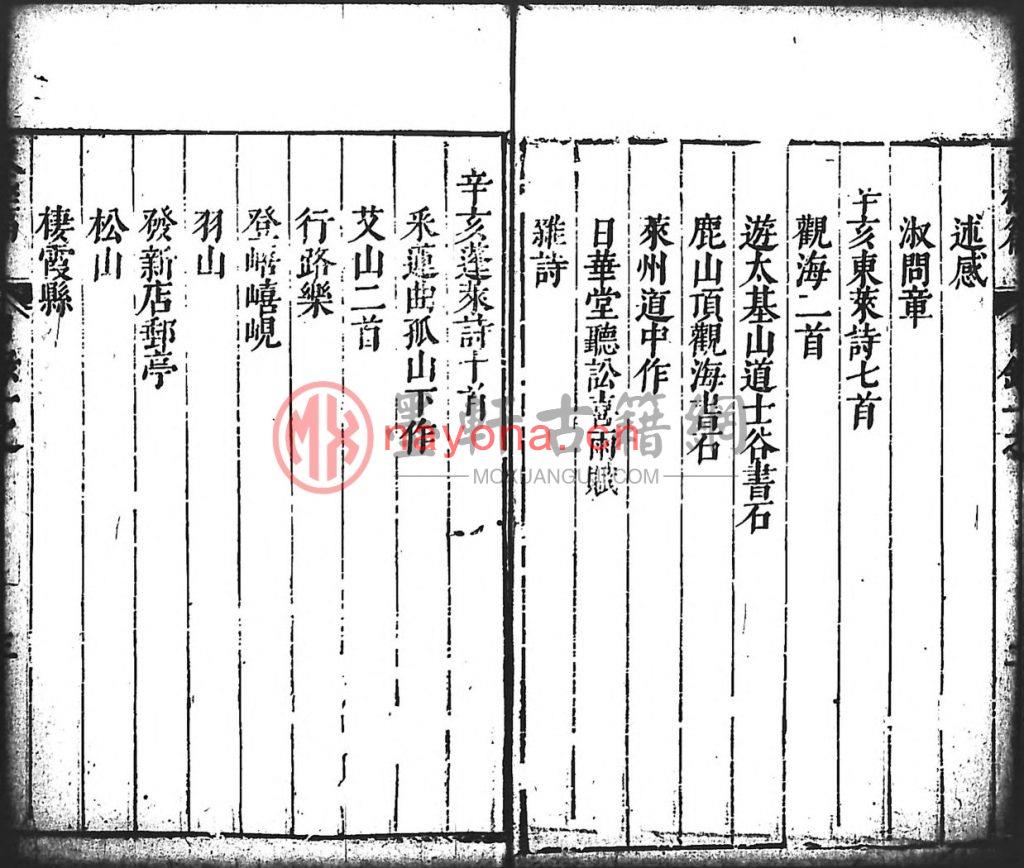 述感
淑問章
辛亥東萊詩七首
觀海二首
遊太基山道士谷書石
鹿山頂觀海書石
萊州道中作
日華堂聽訟喜雨賦
雜詩
辛亥蓬萊詩十首
采蓮曲孤山下作
艾山二首
行路樂
登嶱嶱峴
羽山
發新店郵亭
松山
棲霞縣
墨軒古籍網
nayona.cn
MOXUANGUJI.COM